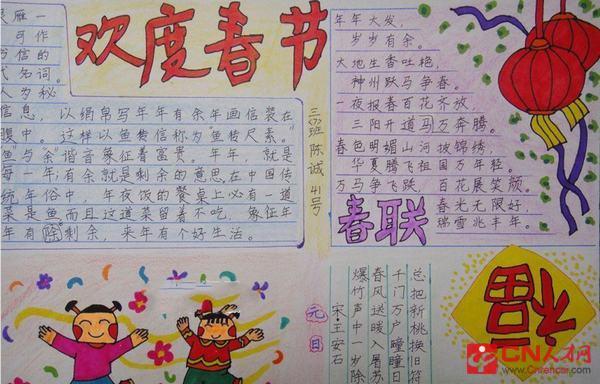 欢度春节
雁一
可作
书信的
代名词。
人为秘
信息，以绢帛写年年有余年画信装在
腹中。这样以鱼传信称为“鱼传尺素”
“鱼”与“余”谐音象征着富贵。年年，就是
每一年；有余就是剩余的意思，在中国传
统年俗中，年夜饭的餐桌上必有一道
菜是鱼，而且这道菜留着不吃，象征年
年有剩余，来年有个好生活。
班 陈诚 41号
年年大发，
岁岁有余。
大地生香吐艳，
神州跃马争春。
一夜报春百花齐放，
三阳开道马万奔腾。
春色明媚山河披锦绣，
华夏腾飞祖国万年轻。
万马争飞跃， 百花展笑颜。
春光无限好，
瑞雪兆丰年。
春联
元日
宋·王安石
爆竹声中一岁除
春风送暖入暑苏
千门万户瞳瞳日
总把新桃换旧符
福
CN人才网
Cnrencai.com